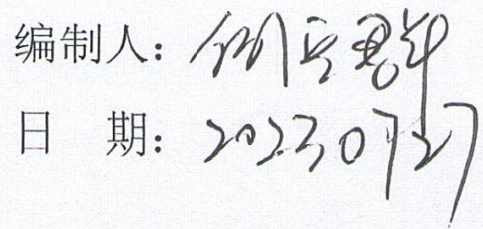 编制人：
日 期：20230727